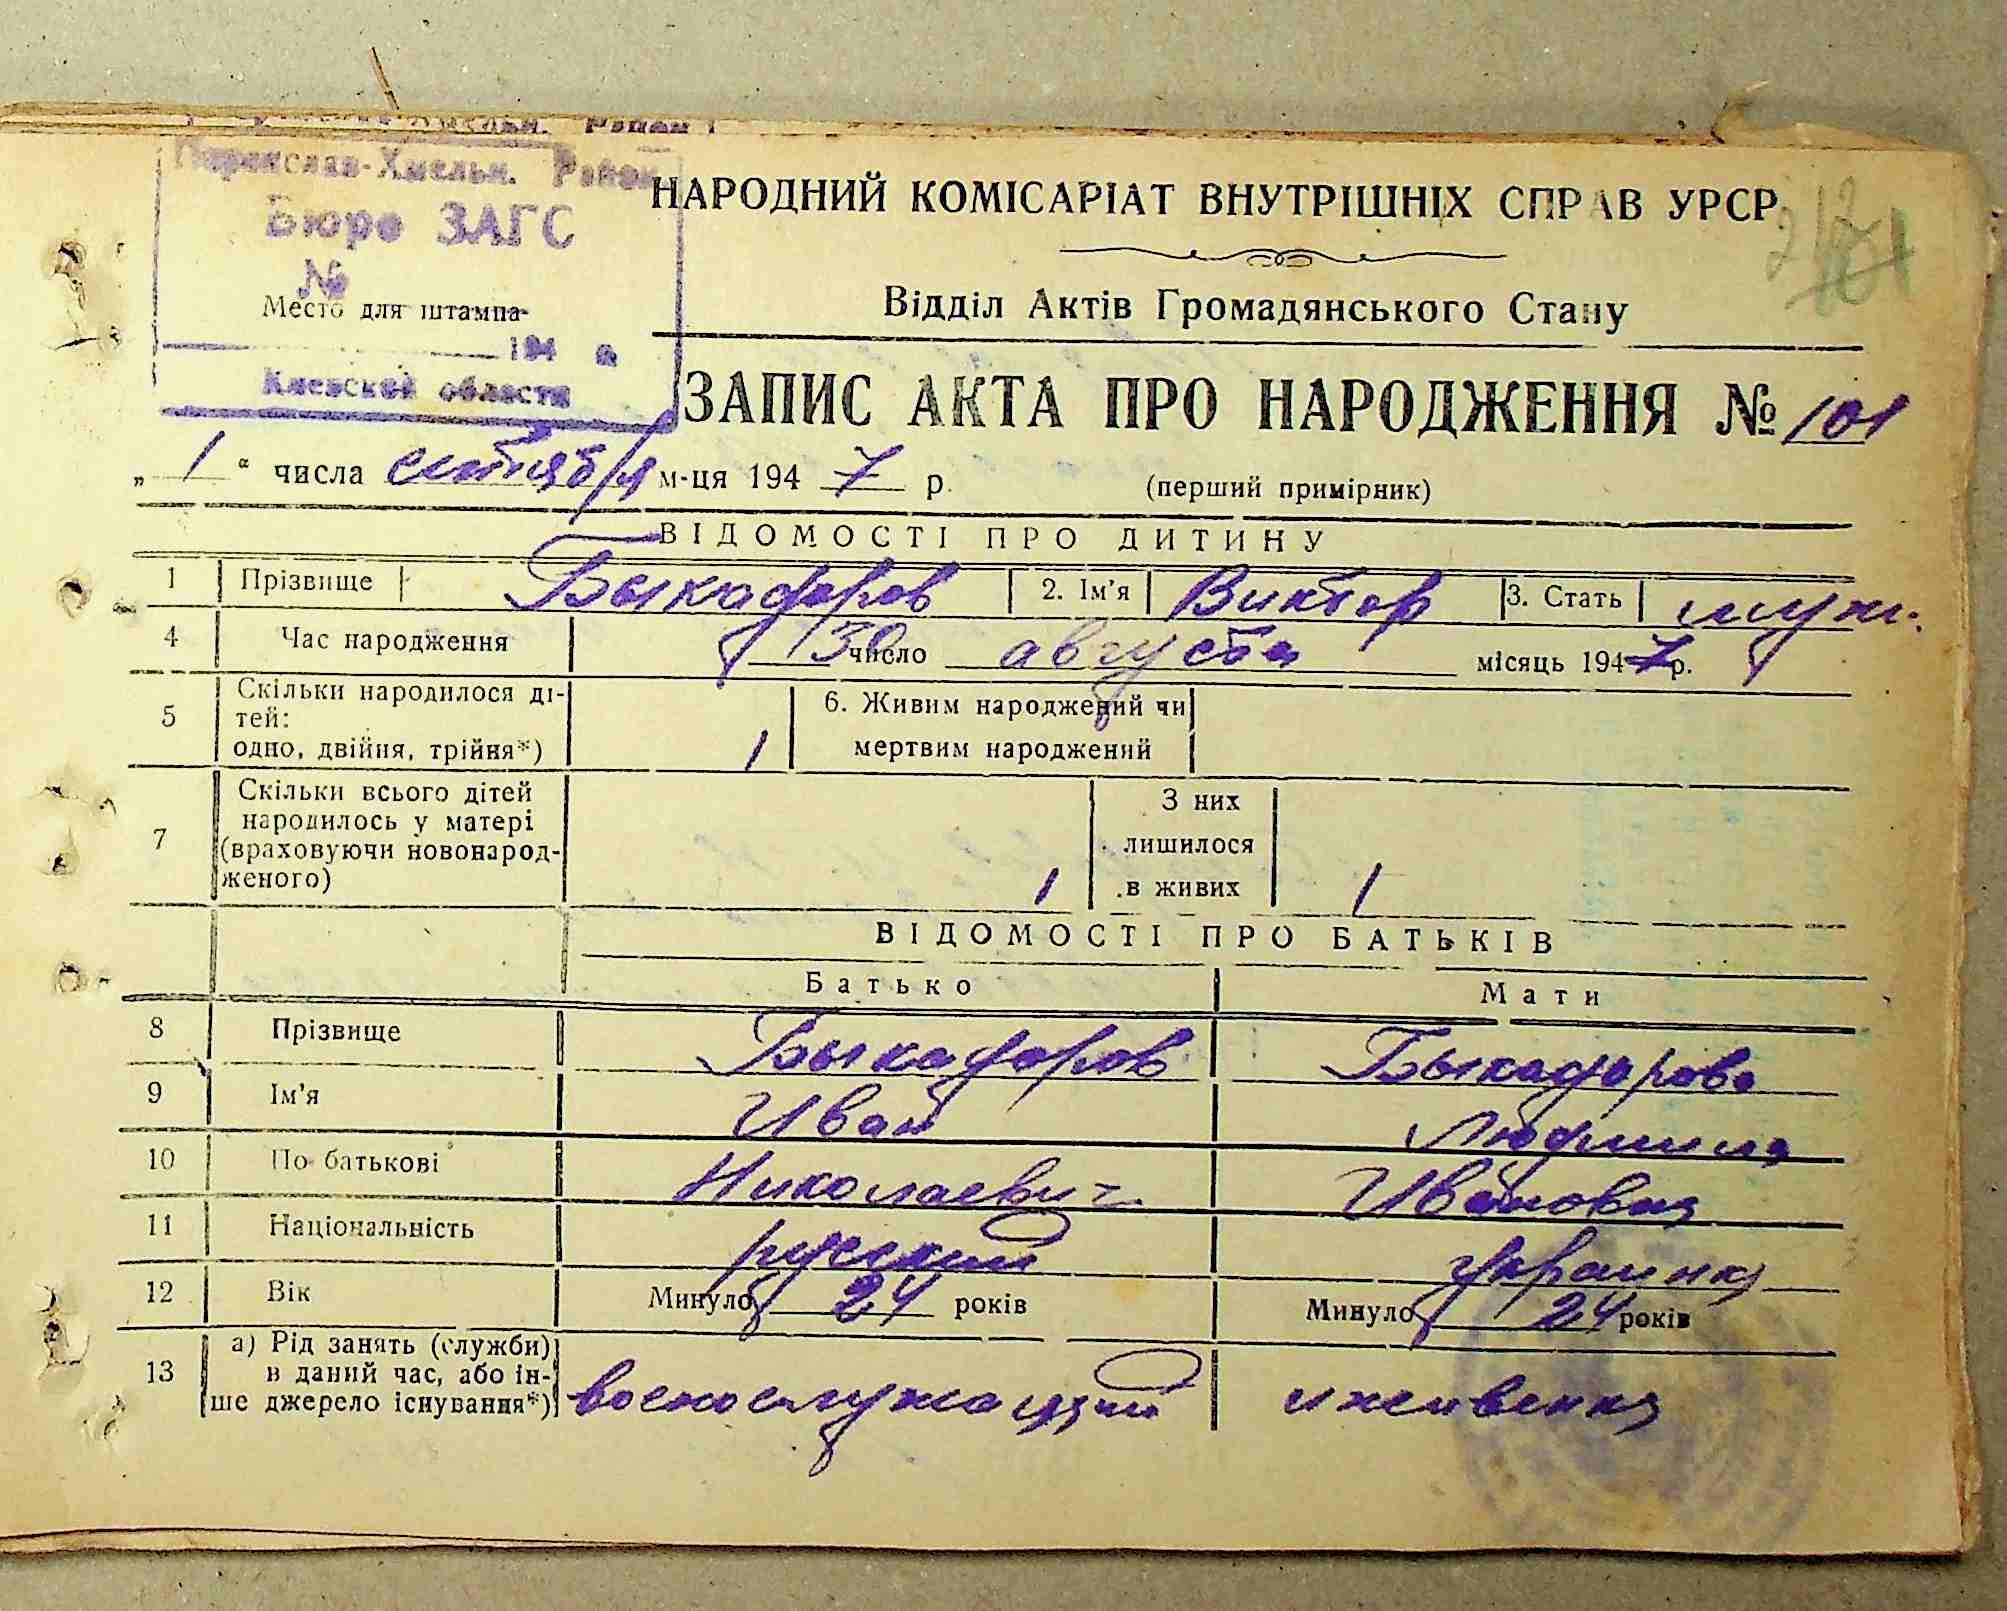 Переяслав-Хмельн. Район
Бюро ЗАГС
№
Место для штампа
194 г.
Киевской области
НАРОДНИЙ КОМІСАРІАТ ВНУТРІШНІХ СПРАВ УРСР
Відділ Актів Громадянського Стану
ЗАПИС АКТА ПРО НАРОДЖЕННЯ № 101
„ 1 “ числа сентября м-ця 1947 р. (перший примірник)
ВІДОМОСТІ ПРО ДИТИНУ
1 Прізвище Быкадоров 2. Ім'я Виктор 3. Стать муж.
4 Час народження 30 число августа місяць 1947 р.
5 Скільки народилося ді-
тей:
одно, двійня, трійня*) 1
6. Живим народжений чи
мертвим народжений
7 Скільки всього дітей
народилось у матері
(враховуючи новонарод-
женого) 1
З них
лишилося
в живих 1
ВІДОМОСТІ ПРО БАТЬКІВ
Батько Мати
8 Прізвище Быкадоров Быкадорова
9 Ім'я Иван Людмила
10 По батькові Николаевич Ивановна
11 Національність русский украинка
12 Вік Минуло 24 років Минуло 24 років
13 а) Рід занять (служби)
в даний час, або ін-
ше джерело існування*) военослужащий иживенка